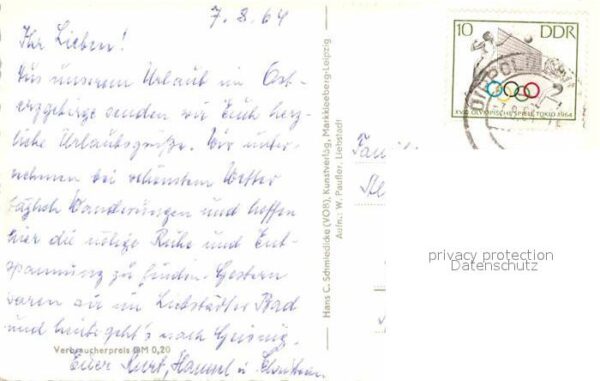 7.8.64
Ihr Lieben!
Aus unserem Urlaub im Ost-
erzgebirge senden wir Euch herz-
liche Urlaubsgrüße. Wir unter-
nehmen bei schönstem Wetter
täglich Wanderungen und hoffen
hier die nötige Ruhe und Ent-
spannung zu finden. Gestern
waren wir im Liebstädter Bad
und heute geht's nach Geising.
Verbraucherpreis DM 0,20
Euer Kurt, Hannel u.
Hans C. Schmiedicke (VOB), Kunstverlag, Markkleeberg-Leipzig
Aufn.: W. Paufler, Liebstadt
10 DDR
XVIII. OLYMPISCHE SPIELE TOKIO 1964
Fami
privacy protection
Datenschutz